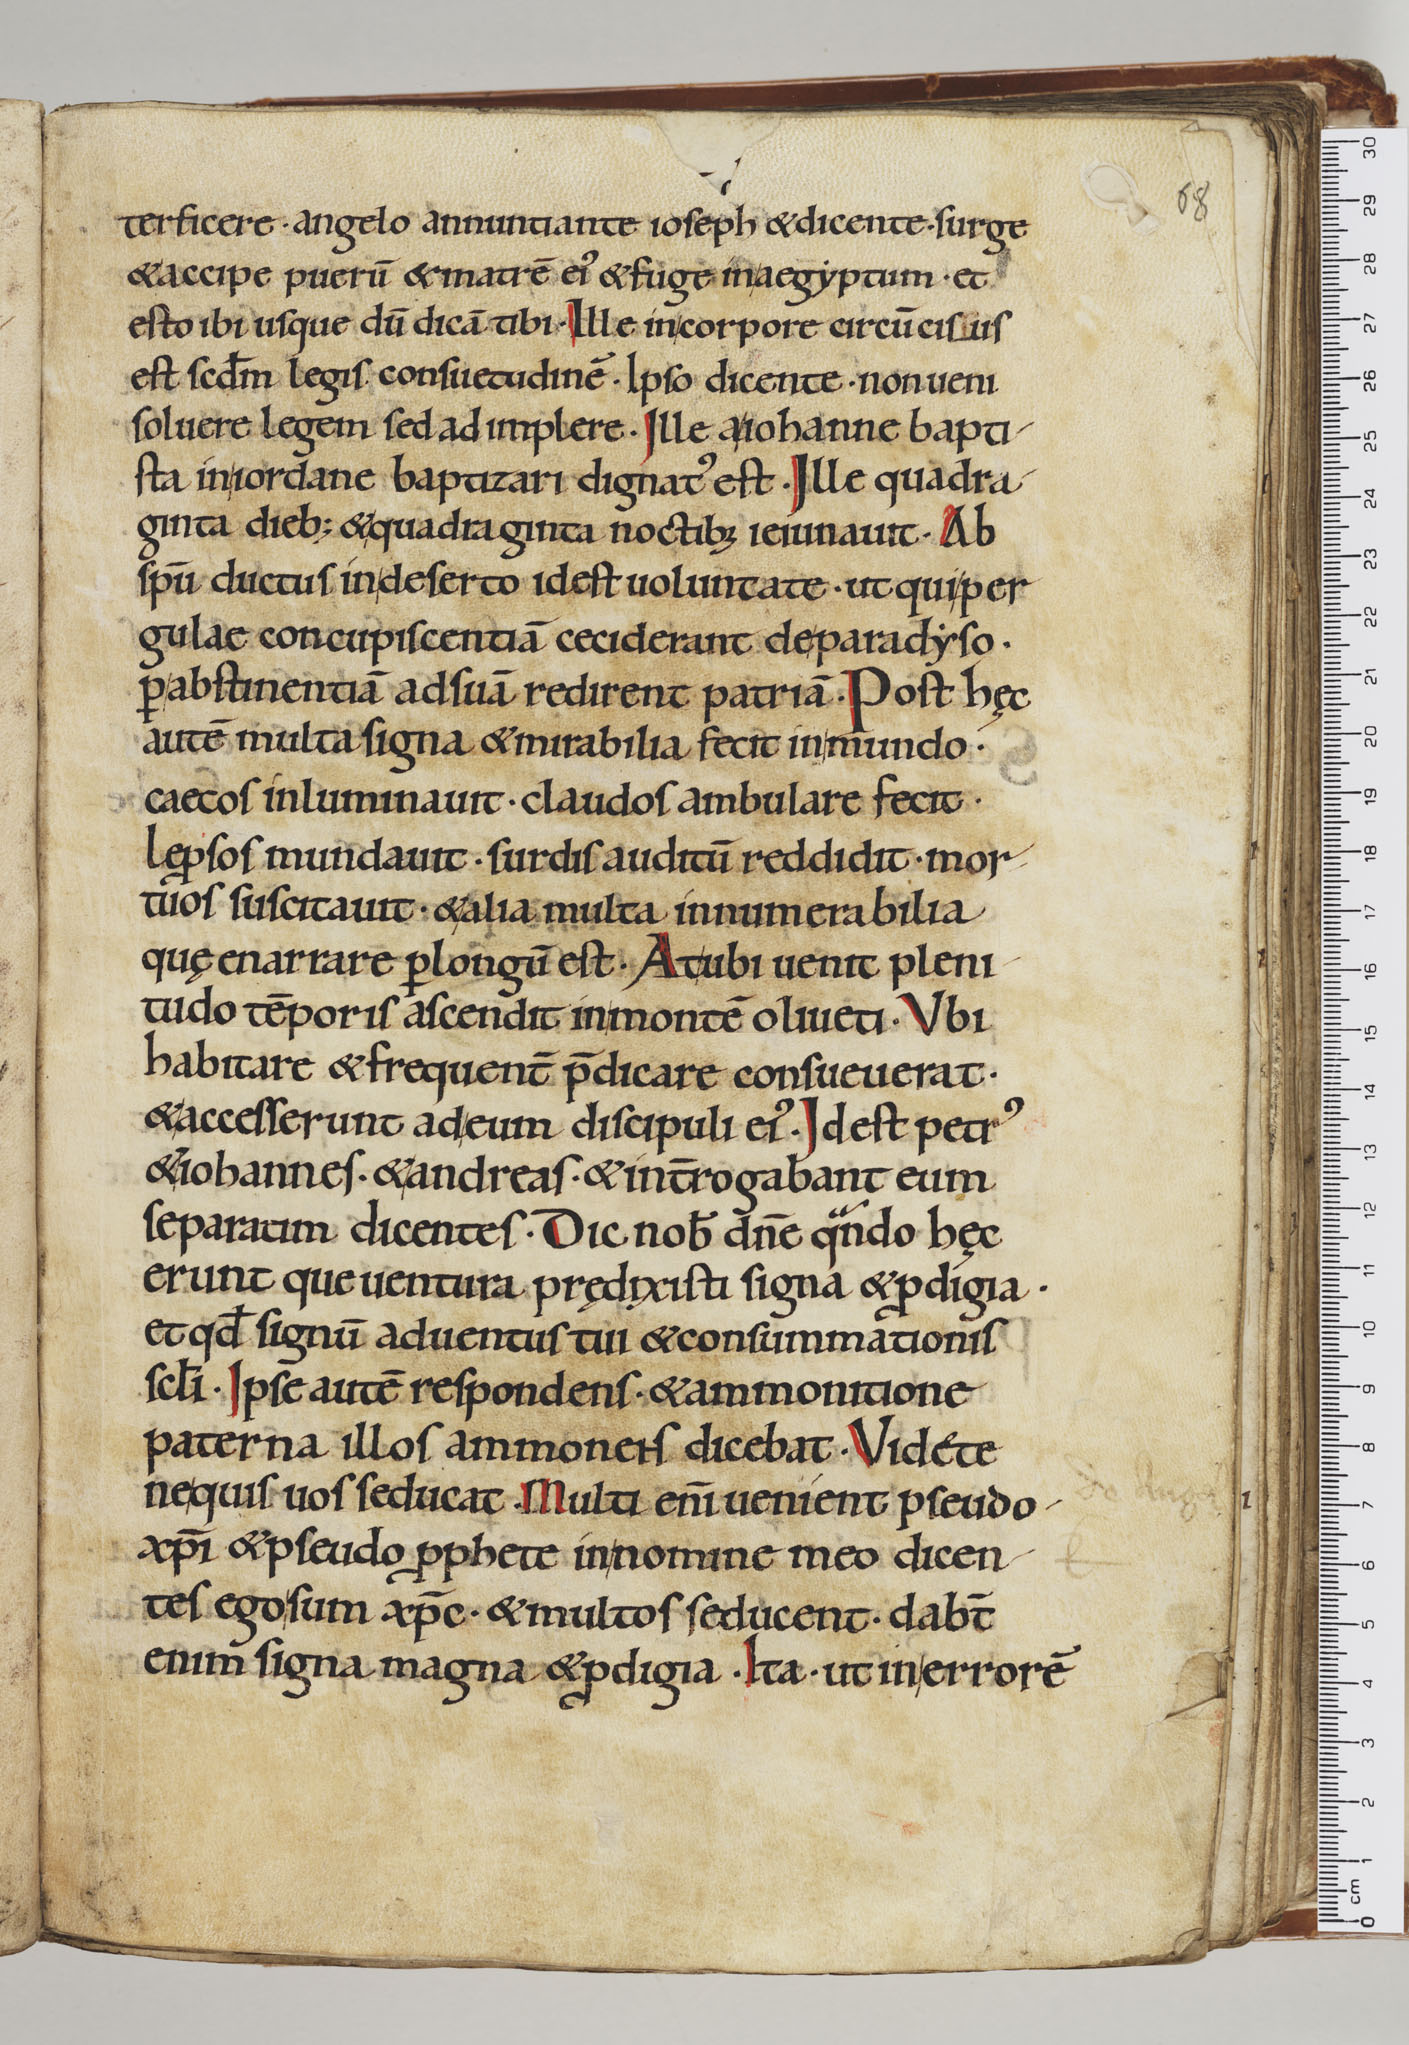 68
terficere · angelo annuntiante ioseph & dicente · surge
& accipe puerū & matrē ei᾽ & fuge in aegẏptum · et
esto ibi usque dū dicā tibi · Ille in corpore circūcisus
est scdm̄ legis consuetudinē · Ipso dicente · non ueni
soluere legem sed adimplere · Ille a iohanne bapti-
sta in iordane baptizari dignat᾽ est · Ille quadra-
ginta dieb; & quadraginta noctibꝫ ieiunauit · Ab
spū ductus in deserto id est uoluntate · ut qui per
gulae concupiscentiā ceciderant de paradẏso ·
ꝑ abstinentiā ad suā redirent patriā · Post hęc
autē multa signa & mirabilia fecit in mundo ·
caecos inluminauit · claudos ambulare fecit ·
leꝓsos mundauit · surdis auditū reddidit · mor-
tuos suscitauit · & alia multa innumerabilia
quę enarrare ꝑlongū est · At ubi uenit pleni-
tudo tēporis ascendit in montē oliueti · Vbi
habitare & frequent̄ p̄dicare consueuerat ·
& accesserunt ad eum discipuli ei᾽ · Id est petr᾽
& iohannes · & andreas · & int̄rogabant eum
separatim dicentes · Dic nob̄ dn̄e qͣndo hęc
erunt que uentura prędixisti signa & ꝓdigia ·
et qd̄ signū aduentus tui & consummationis
scl̄i · Ipse autē respondens · & ammonitione
paterna illos ammonens dicebat · Vidéte
ne quis uos seducat · Multi eni̅ uenient pseudo-
xp̄i & pseudo ꝓphete in nomine meo dicen-
tes ego sum xp̄c · & multos seducent · dabt̄
enim signa magna & ꝓdigia · Ita · ut in errorē